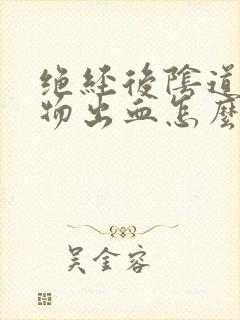 绝经後陰道
物出血怎麼
吴金容